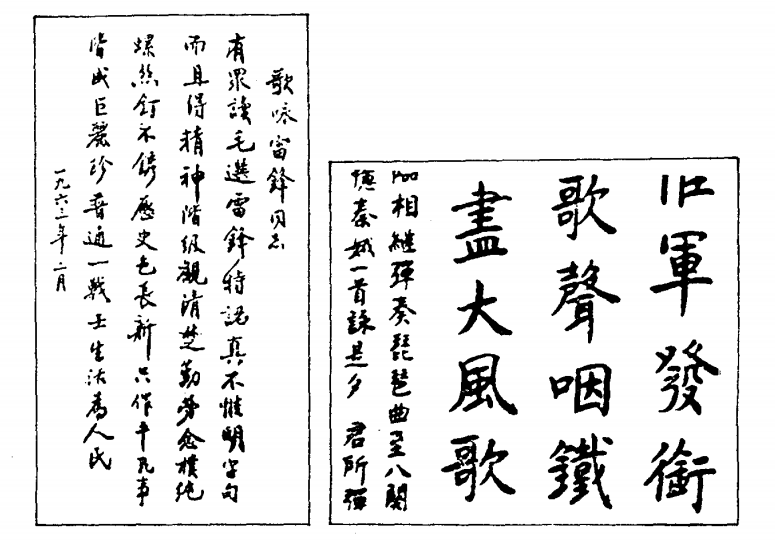 軍發衝
歌聲咽鐵
盡大風歌
相繼彈奏琵琶曲至八
憶秦娥一首詠是夕 君所彈
歌咏雷鋒同志
有眾讀毛選雷鋒特認真不惟明字句
而且得精神階級觀清楚勤勞念樸純
螺絲釘不鏽歷史色長新只作平凡事
皆成巨麗珍普通一戰士生活為人民
一九六三年二月